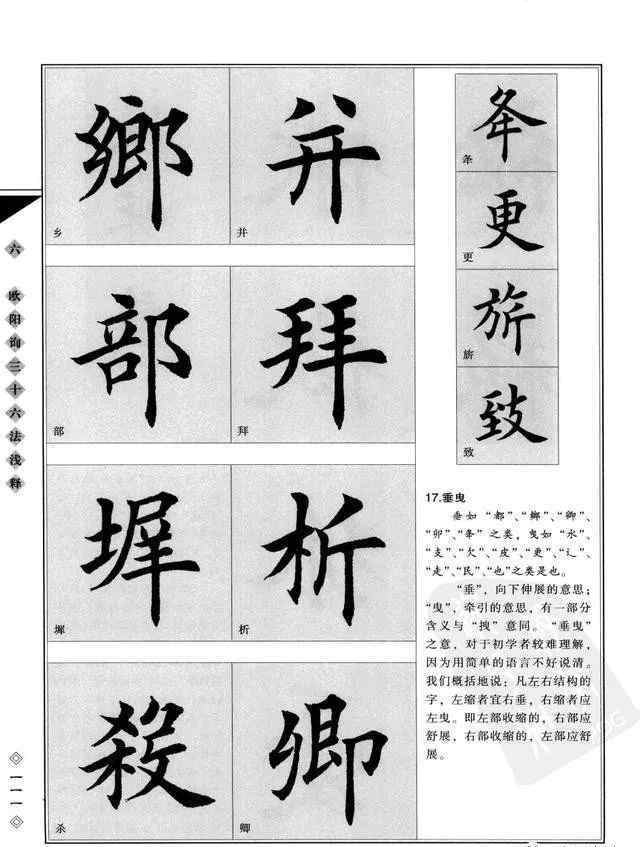 六 欧阳询三十六法浅释
一一一
鄉 并
乡 并
部 拜
部 拜
墀 析
墀 析
殺 卿
杀 卿
条
更
更
旂
致
致
17.垂曳
垂如“都”、“鄉”、“卿”、
“卯”、“条”之类，曳如“水”、
“支”、“欠”、“皮”、“更”、“辶”、
“走”、“民”、“也”之类是也。
“垂”，向下伸展的意思；
“曳”，牵引的意思，有一部分
含义与“拽”意同。“垂曳”
之意，对于初学者较难理解，
因为用简单的语言不好说清。
我们概括地说：凡左右结构的
字，左缩者宜右垂，右缩者应
左曳。即左部收缩的，右部应
舒展，右部收缩的，左部应舒
展。